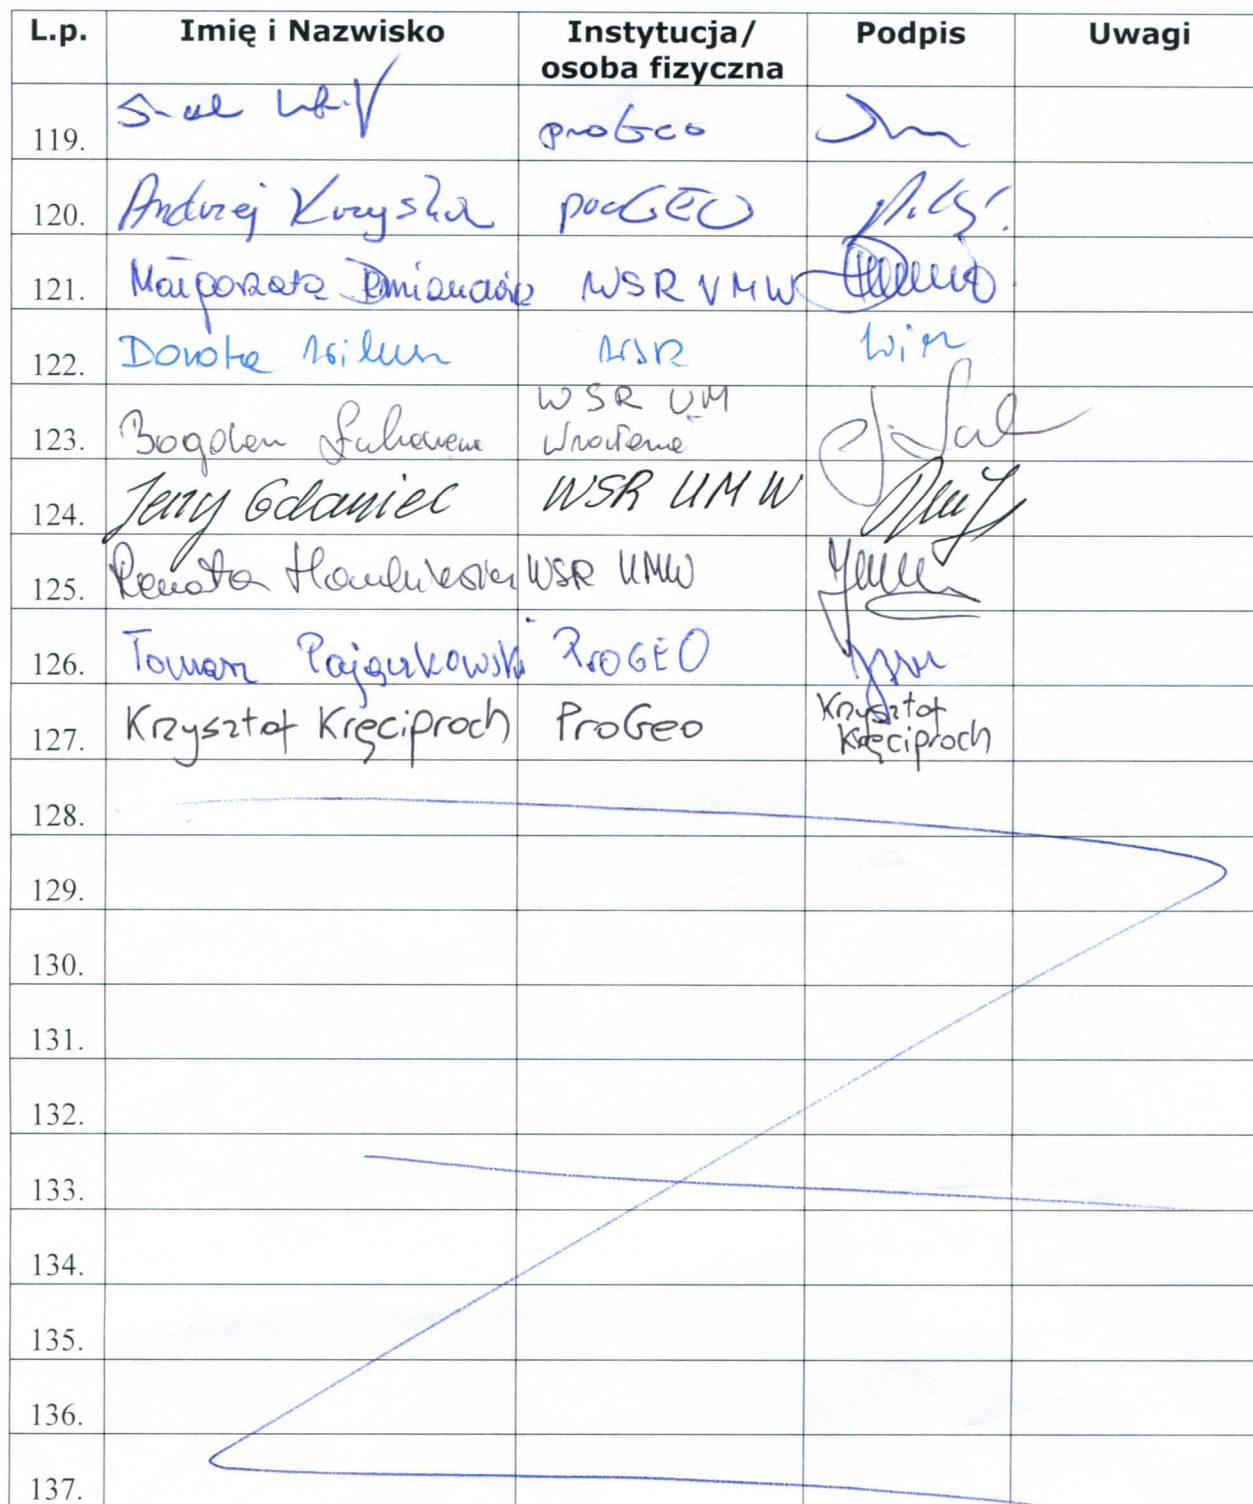 L.p. Imię i Nazwisko Instytucja/ osoba fizyczna Podpis Uwagi
119. proGeo
120. Andrzej proGEO
121. Małgorzata WSR UMW
122. Dorota WSR
123. Bogdan WSR UM Wrocławia
124. Jerzy Gdaniec WSR UM W
125. Renata WSR UMW
126. Tomasz Pajączkowski ProGEO
127. Krzysztof Kręciproch ProGeo Krzysztof Kręciproch
128.
129.
130.
131.
132.
133.
134.
135.
136.
137.